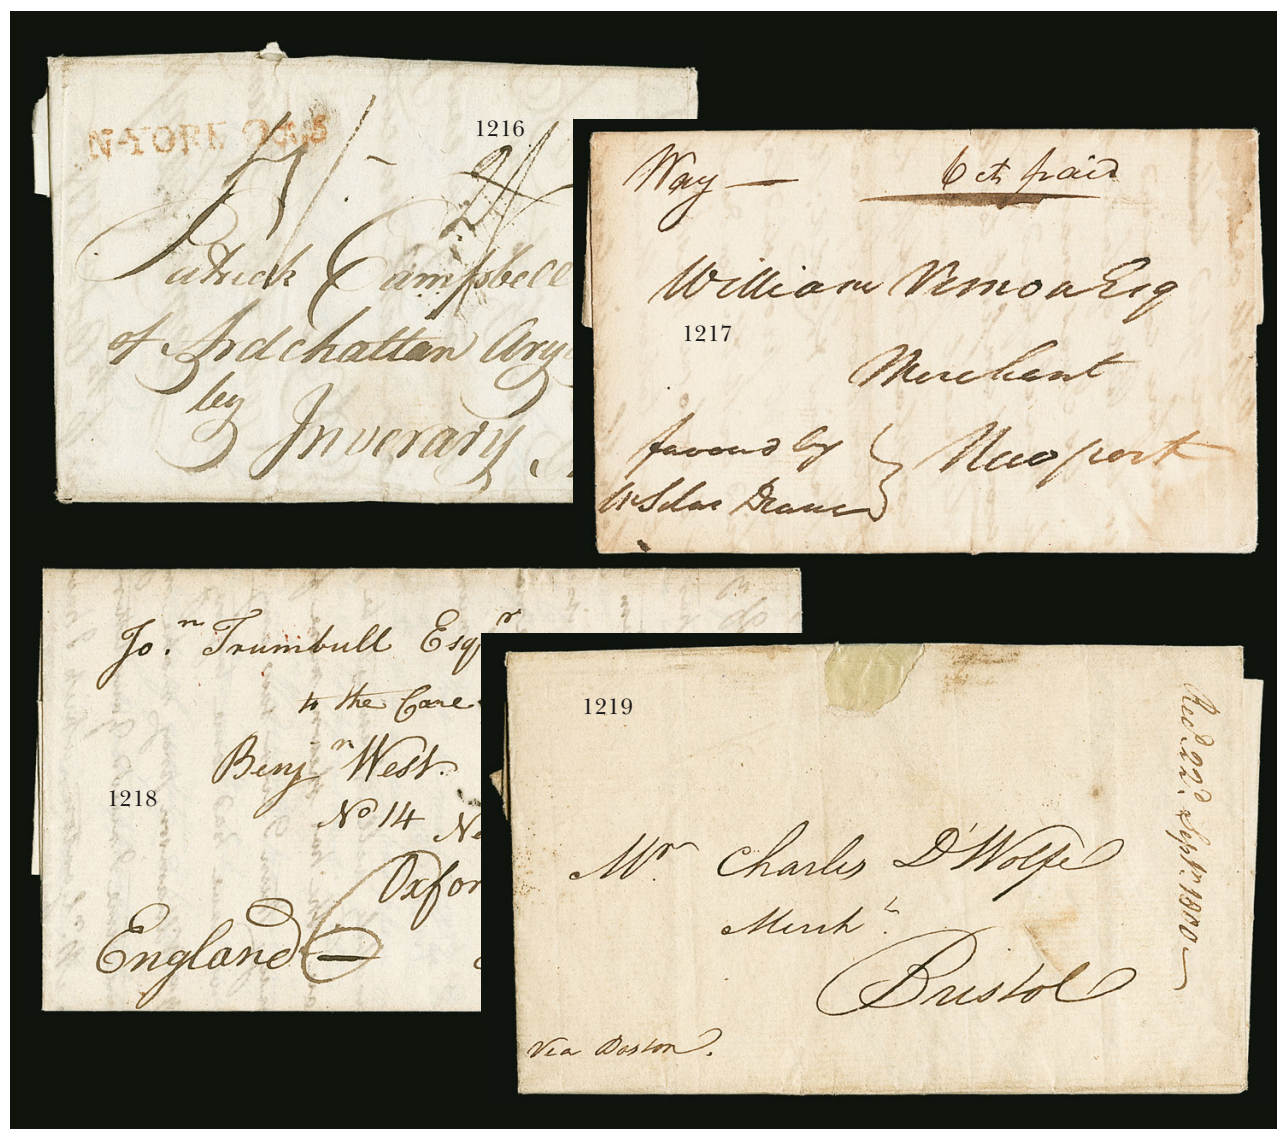 1216
N-YORK
Patrick Campbell
of Ardchattan Argy
by
Inverary
Way — 6 cts paid
William Vernon Esq
1217
Merchant
favourd by } Newport
Mr Silas Deane
Jo.n Trumbull Esqr
to the Care
Benjn West.
1218
No 14 Ne
Oxfor
England
1219
Recd. 22d. Septr. 1800
Mr. Charles D'Wolfe
Mercht.
Bristol
Via Boston.